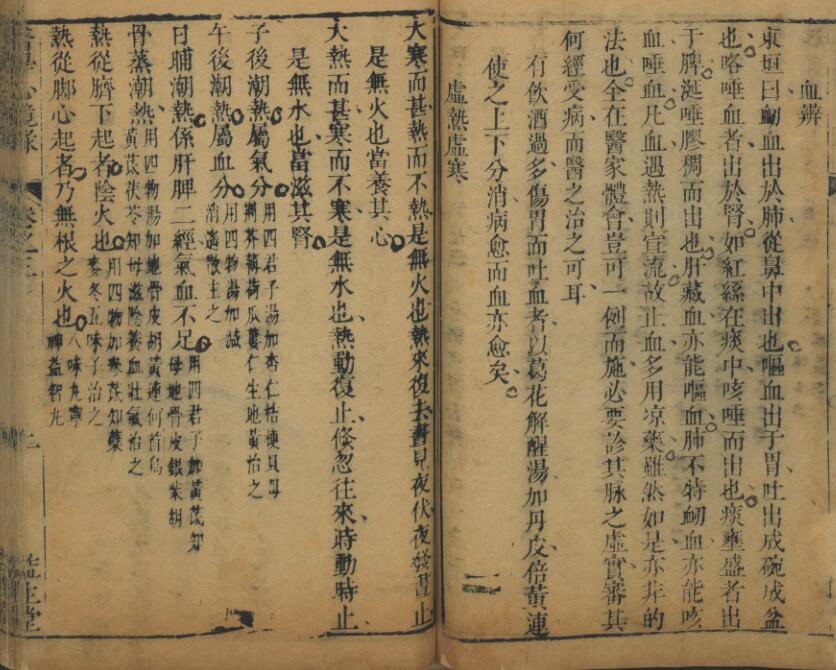 血辨
東垣曰衂血出於肺從鼻中出也嘔血出于胃吐出成碗成盆
也咯唾血者出於腎如紅絲在痰中咳唾而出也痰壅盛者出
于脾涎唾膠稠而出也肝藏血亦能嘔血肺不特衂血亦能咳
血唾血凡血遇熱則宣流故止血多用凉藥雖然如是亦非的
法也全在醫家體會豈可一例而施必要診其脉之虛實審其
何經受病而醫之治之可耳
有飲酒過多傷胃而吐血者以葛花解酲湯加丹皮倍黃連
使之上下分消病愈而血亦愈矣
虛熱虛寒
二
大寒而甚熱而不熱是無火也熱來復去晝見夜伏夜發晝止
是無火也當養其心
大熱而甚寒而不寒是無水也熱動復止倏忽往來時動時止
是無水也當滋其腎
子後潮熱屬氣分用四君子湯加杏仁桔梗貝母
荆芥薄荷瓜蔞仁生地黃治之
午後潮熱屬血分用四物湯加減
消遙散主之
日晡潮熱係肝脾二經氣血不足用四君子加黃芪知
母地骨皮銀柴胡
骨蒸潮熱用四物湯加地骨皮胡黃連何首烏
黃芪茯苓知母滋陰養血壯氣治之
熱從臍下起者陰火也用四物加黃芪知蘗
麥冬五味子治之
熱從脚心起者乃無根之火也八味九寧
神益智九
心鏡錄
卷之三
二